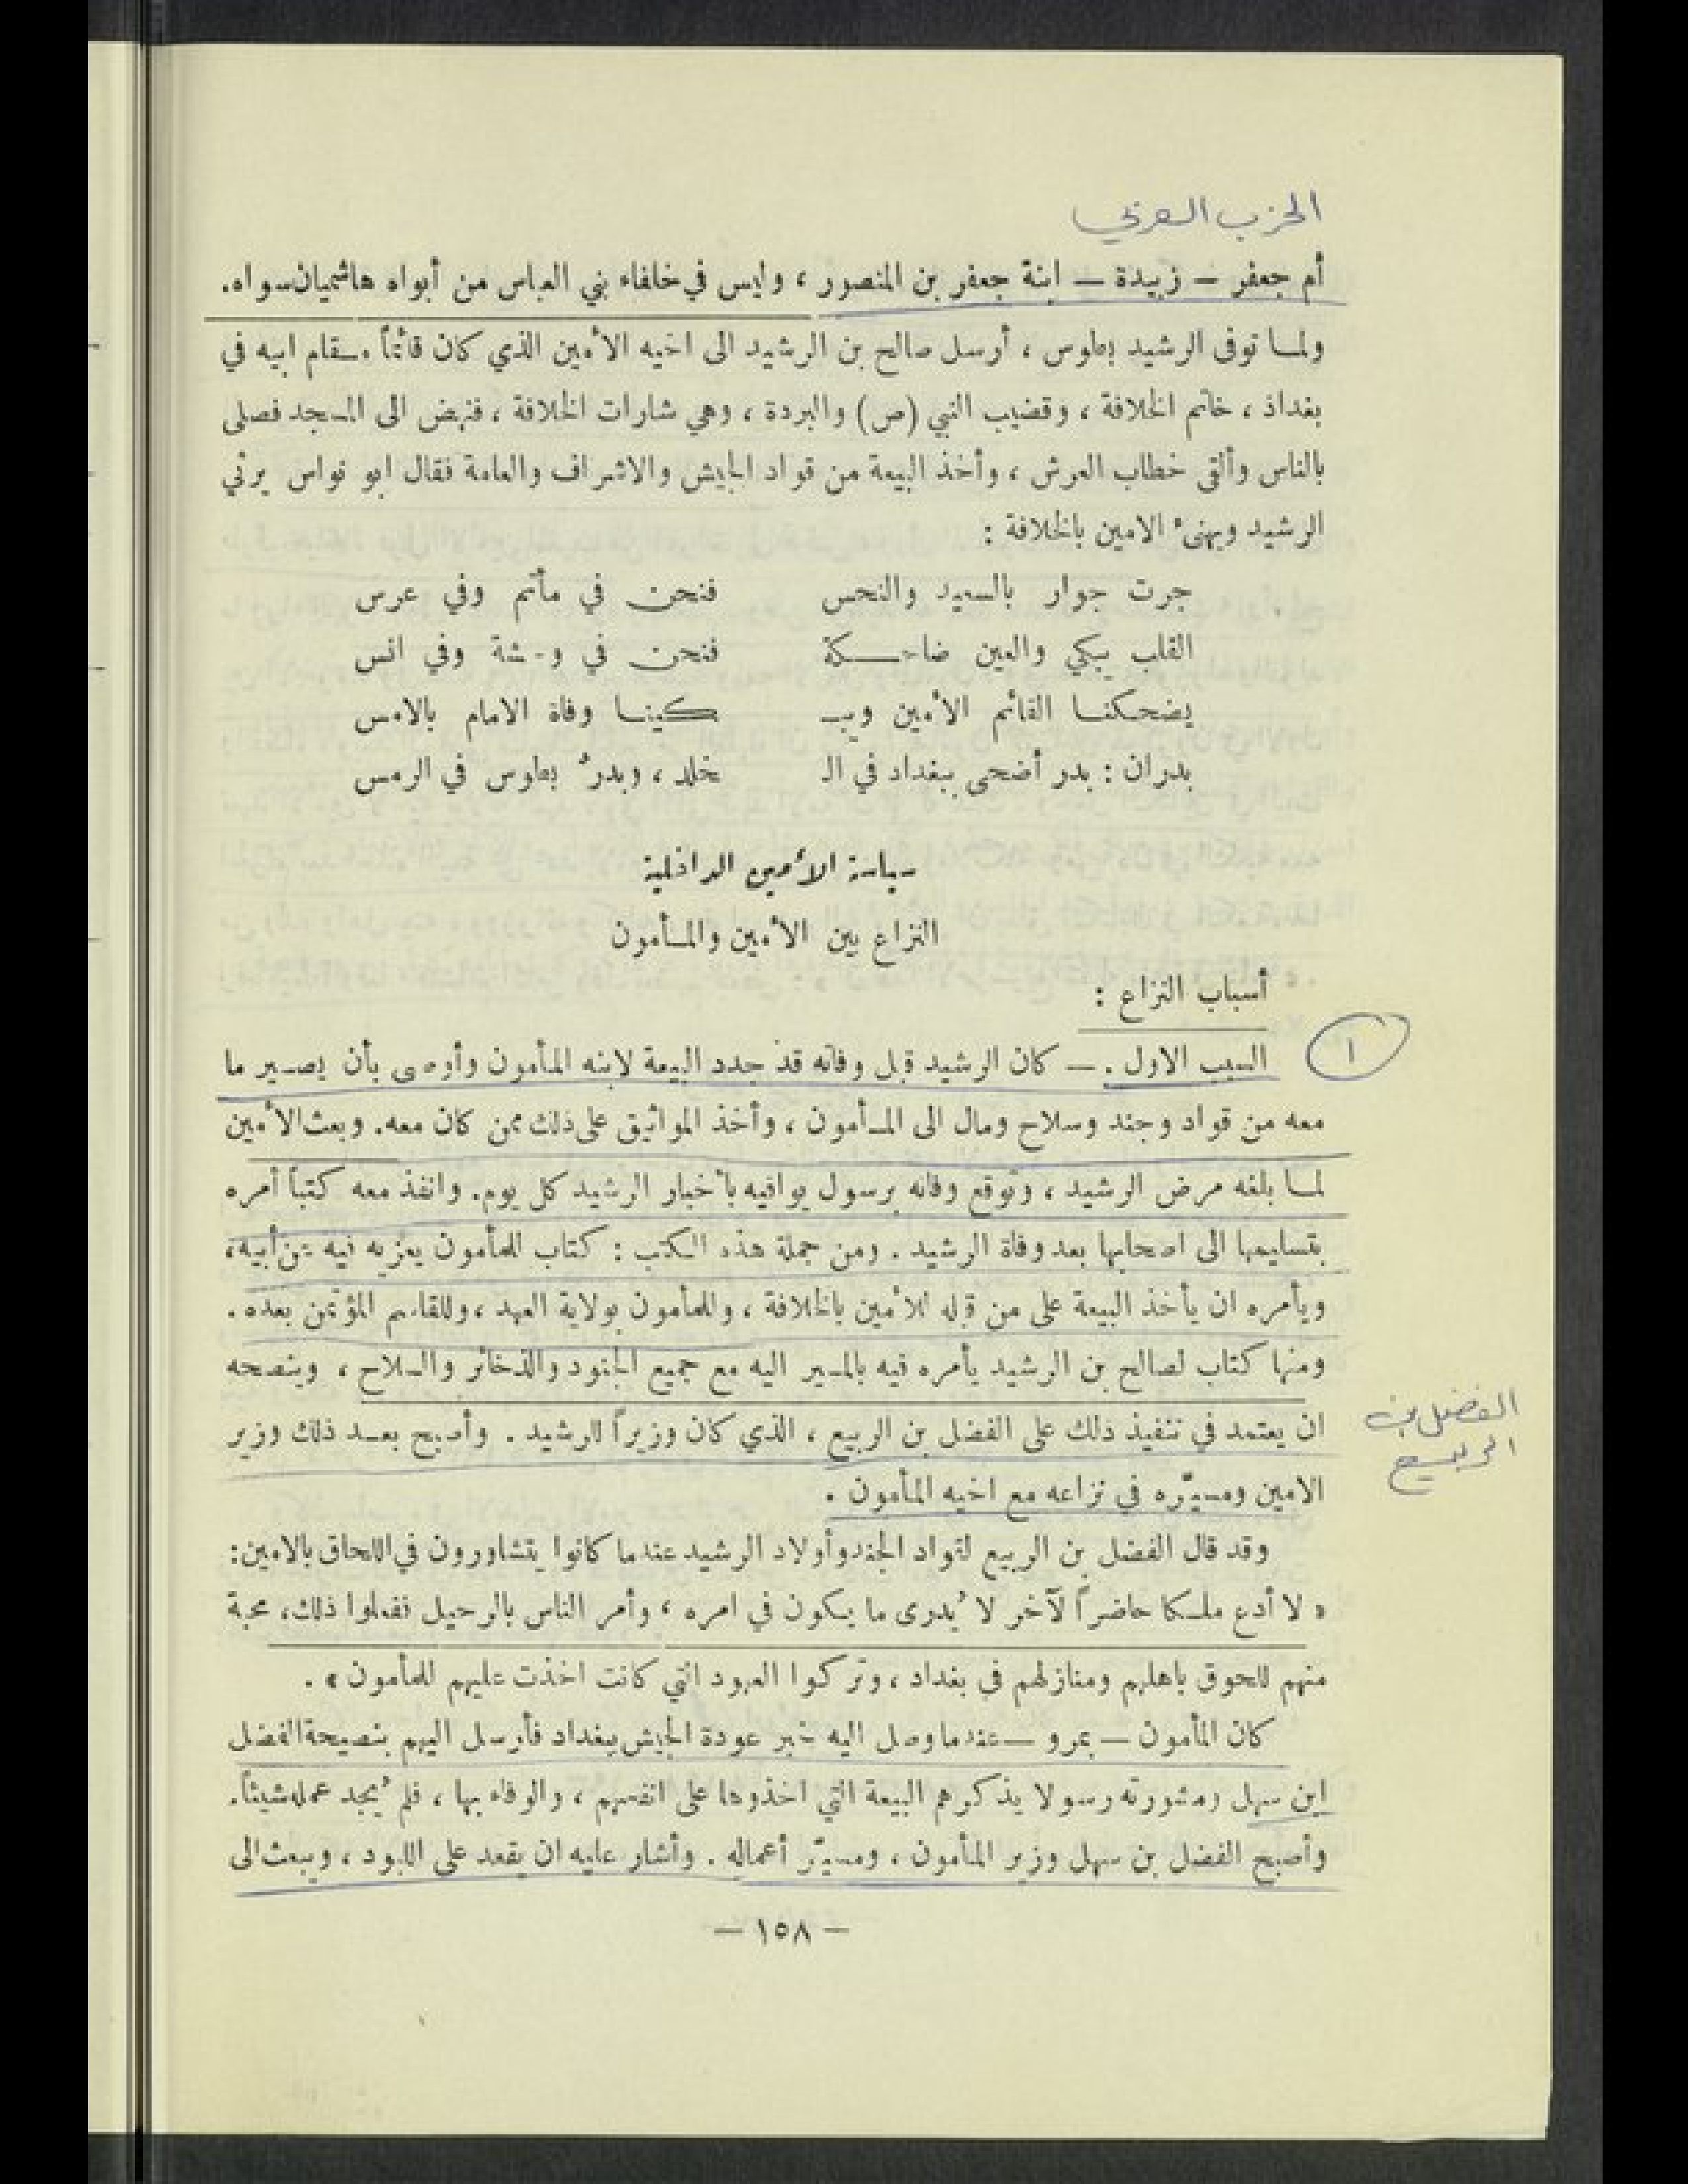 الحزب العربي
أم جعفر — زبيدة — ابنة جعفر بن المنصور ، وليس في خلفاء بني العباس من أبواه هاشميان سواه.
ولمـا توفى الرشيد بطوس ، أرسل صالح بن الرشيد الى اخيه الأمين الذي كان قائماً مـقام ابيه في
بغداذ ، خاتم الخلافة ، وقضيب النبي (ص) والبردة ، وهي شارات الخلافة ، فنهض الى المـجد فصلى
بالناس وألقى خطاب العرش ، وأخذ البيعة من قواد الجيش والاشراف والعامة فقال ابو نواس يرثي
الرشيد ويهنئ الامين بالخلافة :
جرت جوار بالسعيد والنحس فنحن في مأتم وفي عرس
القلب يبكي والعين ضاحـكة فنحن في وحشة وفي انس
يضحكنـا القائم الأمين ويبـ ـكينـا وفاة الامام بالامس
بدران : بدر أضحى ببغداد في الـ خلد ، وبدرٌ بطوس في الرمس
سياسة الأمين الداخلية
النزاع بين الأمين والمـأمون
أسباب النزاع :
١
السبب الاول . — كان الرشيد قبل وفاته قد جدد البيعة لابنه المأمون وأوصى بأن يصـير ما
معه من قواد وجند وسلاح ومال الى المـأمون ، وأخذ المواثيق على ذلك ممن كان معه. وبعث الأمين
لمـا بلغه مرض الرشيد ، وتوقع وفاته برسول يوافيه بأخبار الرشيد كل يوم. وانفذ معه كتباً أمره
بتسليمها الى اصحابها بعد وفاة الرشيد . ومن جملة هذه الكتب : كتاب للمأمون يعزيه فيه عن أبيه،
ويأمره ان يأخذ البيعة على من قبله للأمين بالخلافة ، وللمأمون بولاية العهد ، وللقاسم المؤتمن بعده .
ومنها كتاب لصالح بن الرشيد يأمره فيه بالمـير اليه مع جميع الجنود والذخائر والـلاح ، وينصحه
ان يعتمد في تنفيذ ذلك على الفضل بن الربيع ، الذي كان وزيراً للرشيد . وأصبح بعـد ذلك وزير
الفضل بن
الربيع
الامين ومسيّره في نزاعه مع اخيه المأمون .
وقد قال الفضل بن الربيع لقواد الجند وأولاد الرشيد عندما كانوا يتشاورون في اللحاق بالامين:
« لا أدع ملـكا حاضراً لآخر لا يُدرى ما يكون في امره ، وأمر الناس بالرحيل ففعلوا ذلك، محبة
منهم للحوق باهلهم ومنازلهم في بغداد ، وتركوا العهود التي كانت اخذت عليهم للمأمون » .
كان المأمون — بمرو — عندما وصل اليه خبر عودة الجيش ببغداد فأرسل اليهم بنصيحة الفضل
ابن سهل ومشورته رسولا يذكرهم البيعة التي اخذوها على انفسهم ، والوفاء بها ، فلم يُجد عمله شيئاً.
وأصبح الفضل بن سهل وزير المأمون ، ومسيّر أعماله . وأشار عليه ان يقعد على اللبود ، ويبعث الى
— ١٥٨ —